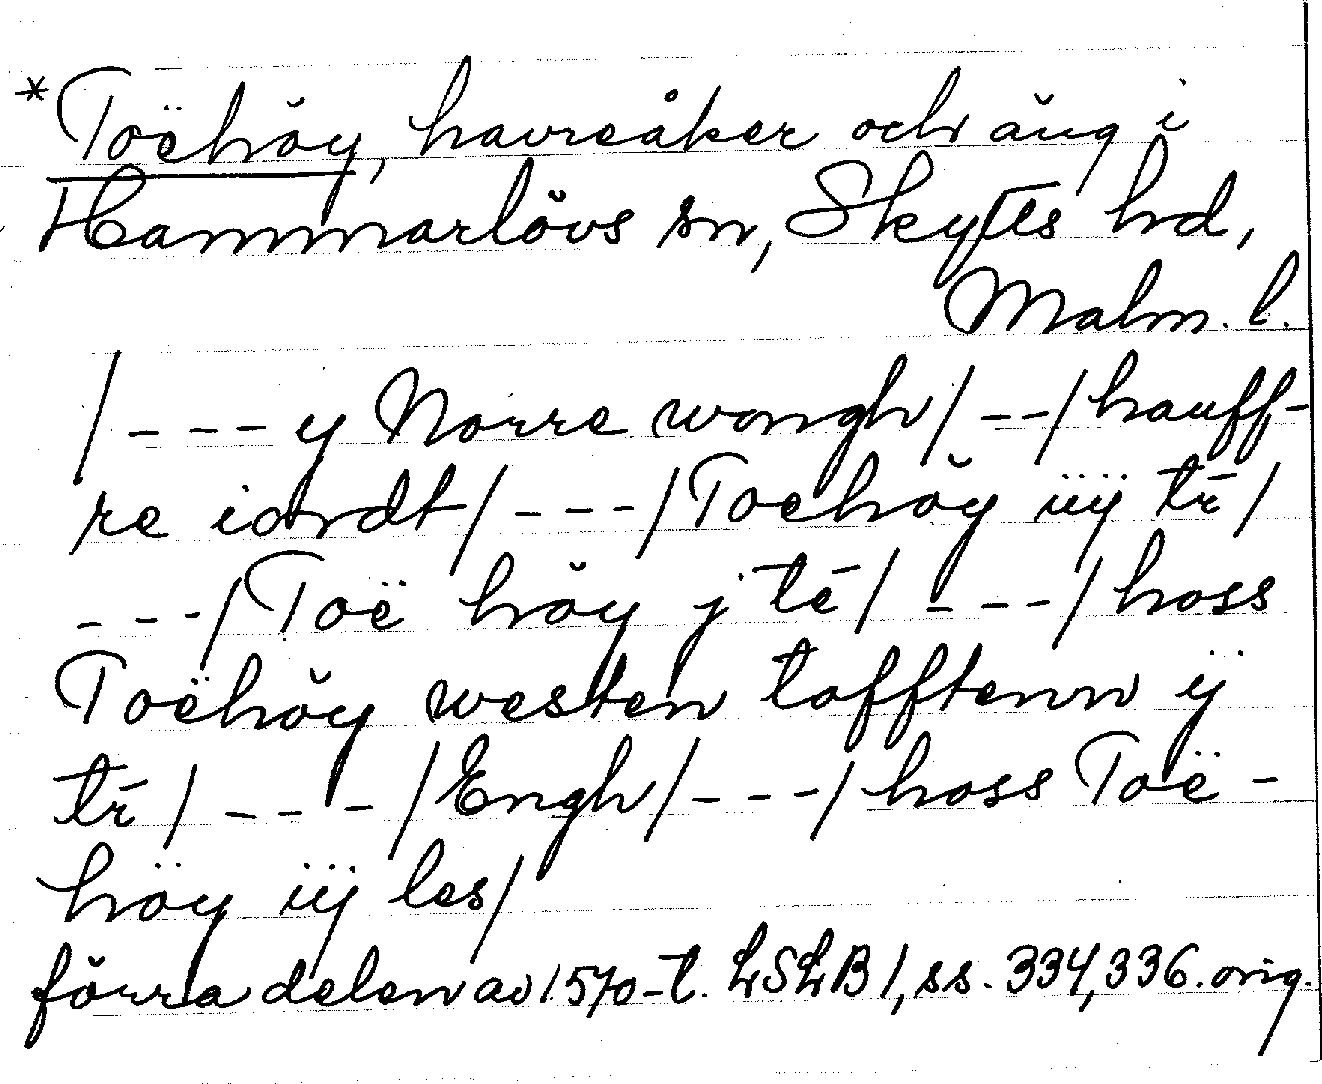 *Toëhöy, havreåker och äng i
Hammarlövs sn, Skytts hd,
Malm. l.
/ - - - y Norre wongh / - - / hauff-
re iordt / - - - / Toehöy iiÿ tr̄ /
- - - / Toë höy j tē / - - - / hoss
Toëhöy westen tofftenn ÿ
tr̄ / - - - / Engh / - - - / hoss Toë -
höy iiÿ les /
förra delen av 1570-t. LSLB 1, ss. 334, 336. orig.